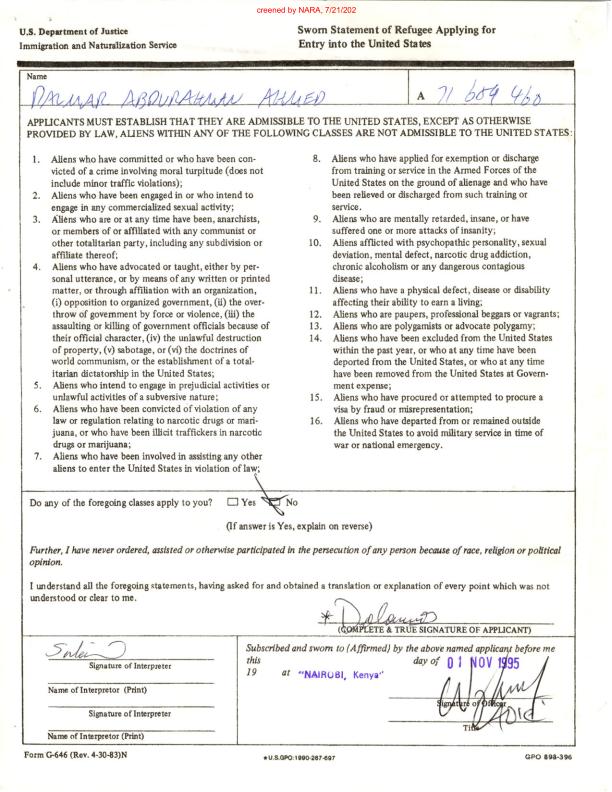 creened by NARA, 7/21/202
U.S. Department of Justice
Immigration and Naturalization Service
Sworn Statement of Refugee Applying for
Entry into the United States
Name
DALMAR ABDURAHMAN AHMED
A 71 609 460
APPLICANTS MUST ESTABLISH THAT THEY ARE ADMISSIBLE TO THE UNITED STATES, EXCEPT AS OTHERWISE
PROVIDED BY LAW, ALIENS WITHIN ANY OF THE FOLLOWING CLASSES ARE NOT ADMISSIBLE TO THE UNITED STATES:
1. Aliens who have committed or who have been con-
victed of a crime involving moral turpitude (does not
include minor traffic violations);
2. Aliens who have been engaged in or who intend to
engage in any commercialized sexual activity;
3. Aliens who are or at any time have been, anarchists,
or members of or affiliated with any communist or
other totalitarian party, including any subdivision or
affiliate thereof;
4. Aliens who have advocated or taught, either by per-
sonal utterance, or by means of any written or printed
matter, or through affiliation with an organization,
(i) opposition to organized government, (ii) the over-
throw of government by force or violence, (iii) the
assaulting or killing of government officials because of
their official character, (iv) the unlawful destruction
of property, (v) sabotage, or (vi) the doctrines of
world communism, or the establishment of a total-
itarian dictatorship in the United States;
5. Aliens who intend to engage in prejudicial activities or
unlawful activities of a subversive nature;
6. Aliens who have been convicted of violation of any
law or regulation relating to narcotic drugs or mari-
juana, or who have been illicit traffickers in narcotic
drugs or marijuana;
7. Aliens who have been involved in assisting any other
aliens to enter the United States in violation of law;
8. Aliens who have applied for exemption or discharge
from training or service in the Armed Forces of the
United States on the ground of alienage and who have
been relieved or discharged from such training or
service.
9. Aliens who are mentally retarded, insane, or have
suffered one or more attacks of insanity;
10. Aliens afflicted with psychopathic personality, sexual
deviation, mental defect, narcotic drug addiction,
chronic alcoholism or any dangerous contagious
disease;
11. Aliens who have a physical defect, disease or disability
affecting their ability to earn a living;
12. Aliens who are paupers, professional beggars or vagrants;
13. Aliens who are polygamists or advocate polygamy;
14. Aliens who have been excluded from the United States
within the past year, or who at any time have been
deported from the United States, or who at any time
have been removed from the United States at Govern-
ment expense;
15. Aliens who have procured or attempted to procure a
visa by fraud or misrepresentation;
16. Aliens who have departed from or remained outside
the United States to avoid military service in time of
war or national emergency.
Do any of the foregoing classes apply to you? Yes No
(If answer is Yes, explain on reverse)
Further, I have never ordered, assisted or otherwise participated in the persecution of any person because of race, religion or political
opinion.
I understand all the foregoing statements, having asked for and obtained a translation or explanation of every point which was not
understood or clear to me.
(COMPLETE & TRUE SIGNATURE OF APPLICANT)
Signature of Interpreter
Name of Interpreter (Print)
Signature of Interpreter
Name of Interpreter (Print)
Subscribed and sworn to (Affirmed) by the above named applicant before me
this day of 01 NOV 1995
19 at "NAIROBI, Kenya"
Signature of Officer
Title
Form G-646 (Rev. 4-30-83)N
★U.S.GPO:1990-267-697
GPO 898-396